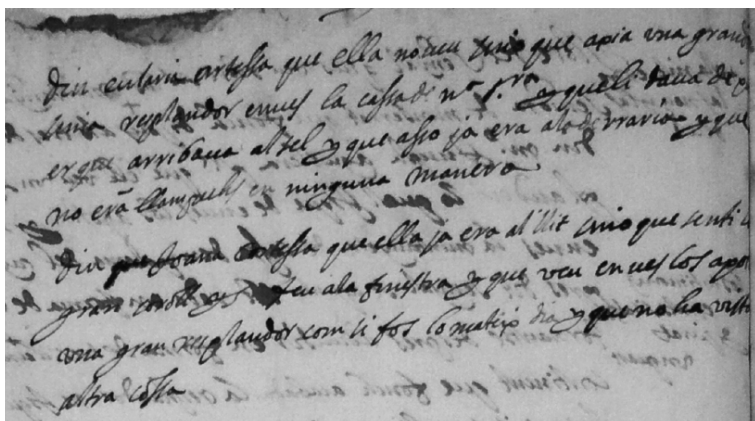 din entari ortessa que ella no veu sino que apia una gran
resplandor enves la cassa de nª sra y que li dava de
que arribava al sel y que asso ja era al derrario y que
no erã llampechs en ninguna manera
din Joana ortessa que ella ja era al llit sino que senti
gran y feu a la finestra y que veu enves los
una gran resplandor com si fos lo mateix dia y que no ha vist
altra cossa